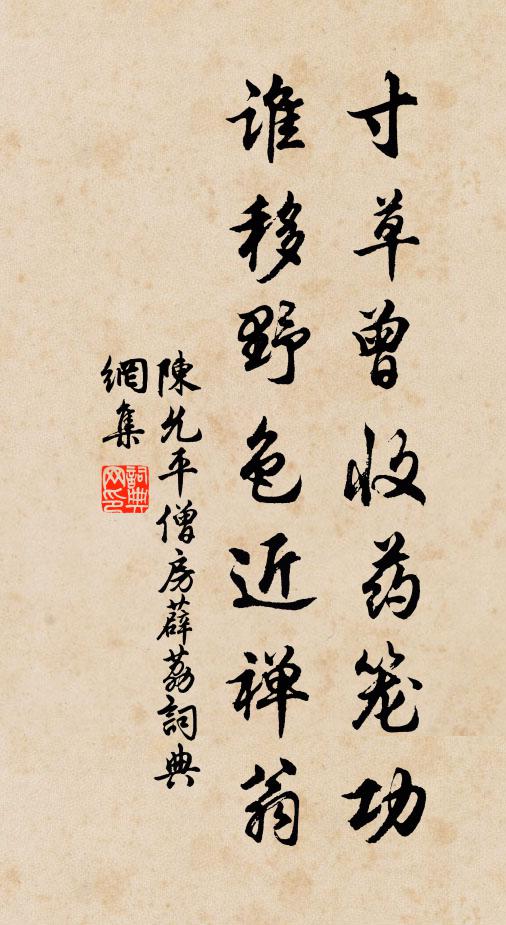 寸草曾收药笼功
谁移野色近禅翁
陳允平僧房薜荔詞典
網集
詞典
网印